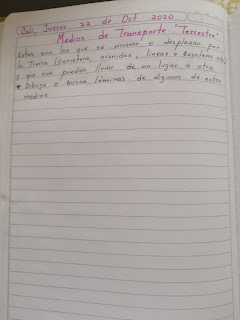 Cali, Jueves 22 de Oct 2020
Medios de Transporte "Terrestre"
Estos son los que se mueven o desplazan por
la Tierra (Carretera, avenidas, lineas o
y que nos pueden llevar de un lugar a otro
* Dibuja o busca láminas de algunos de estos
medios